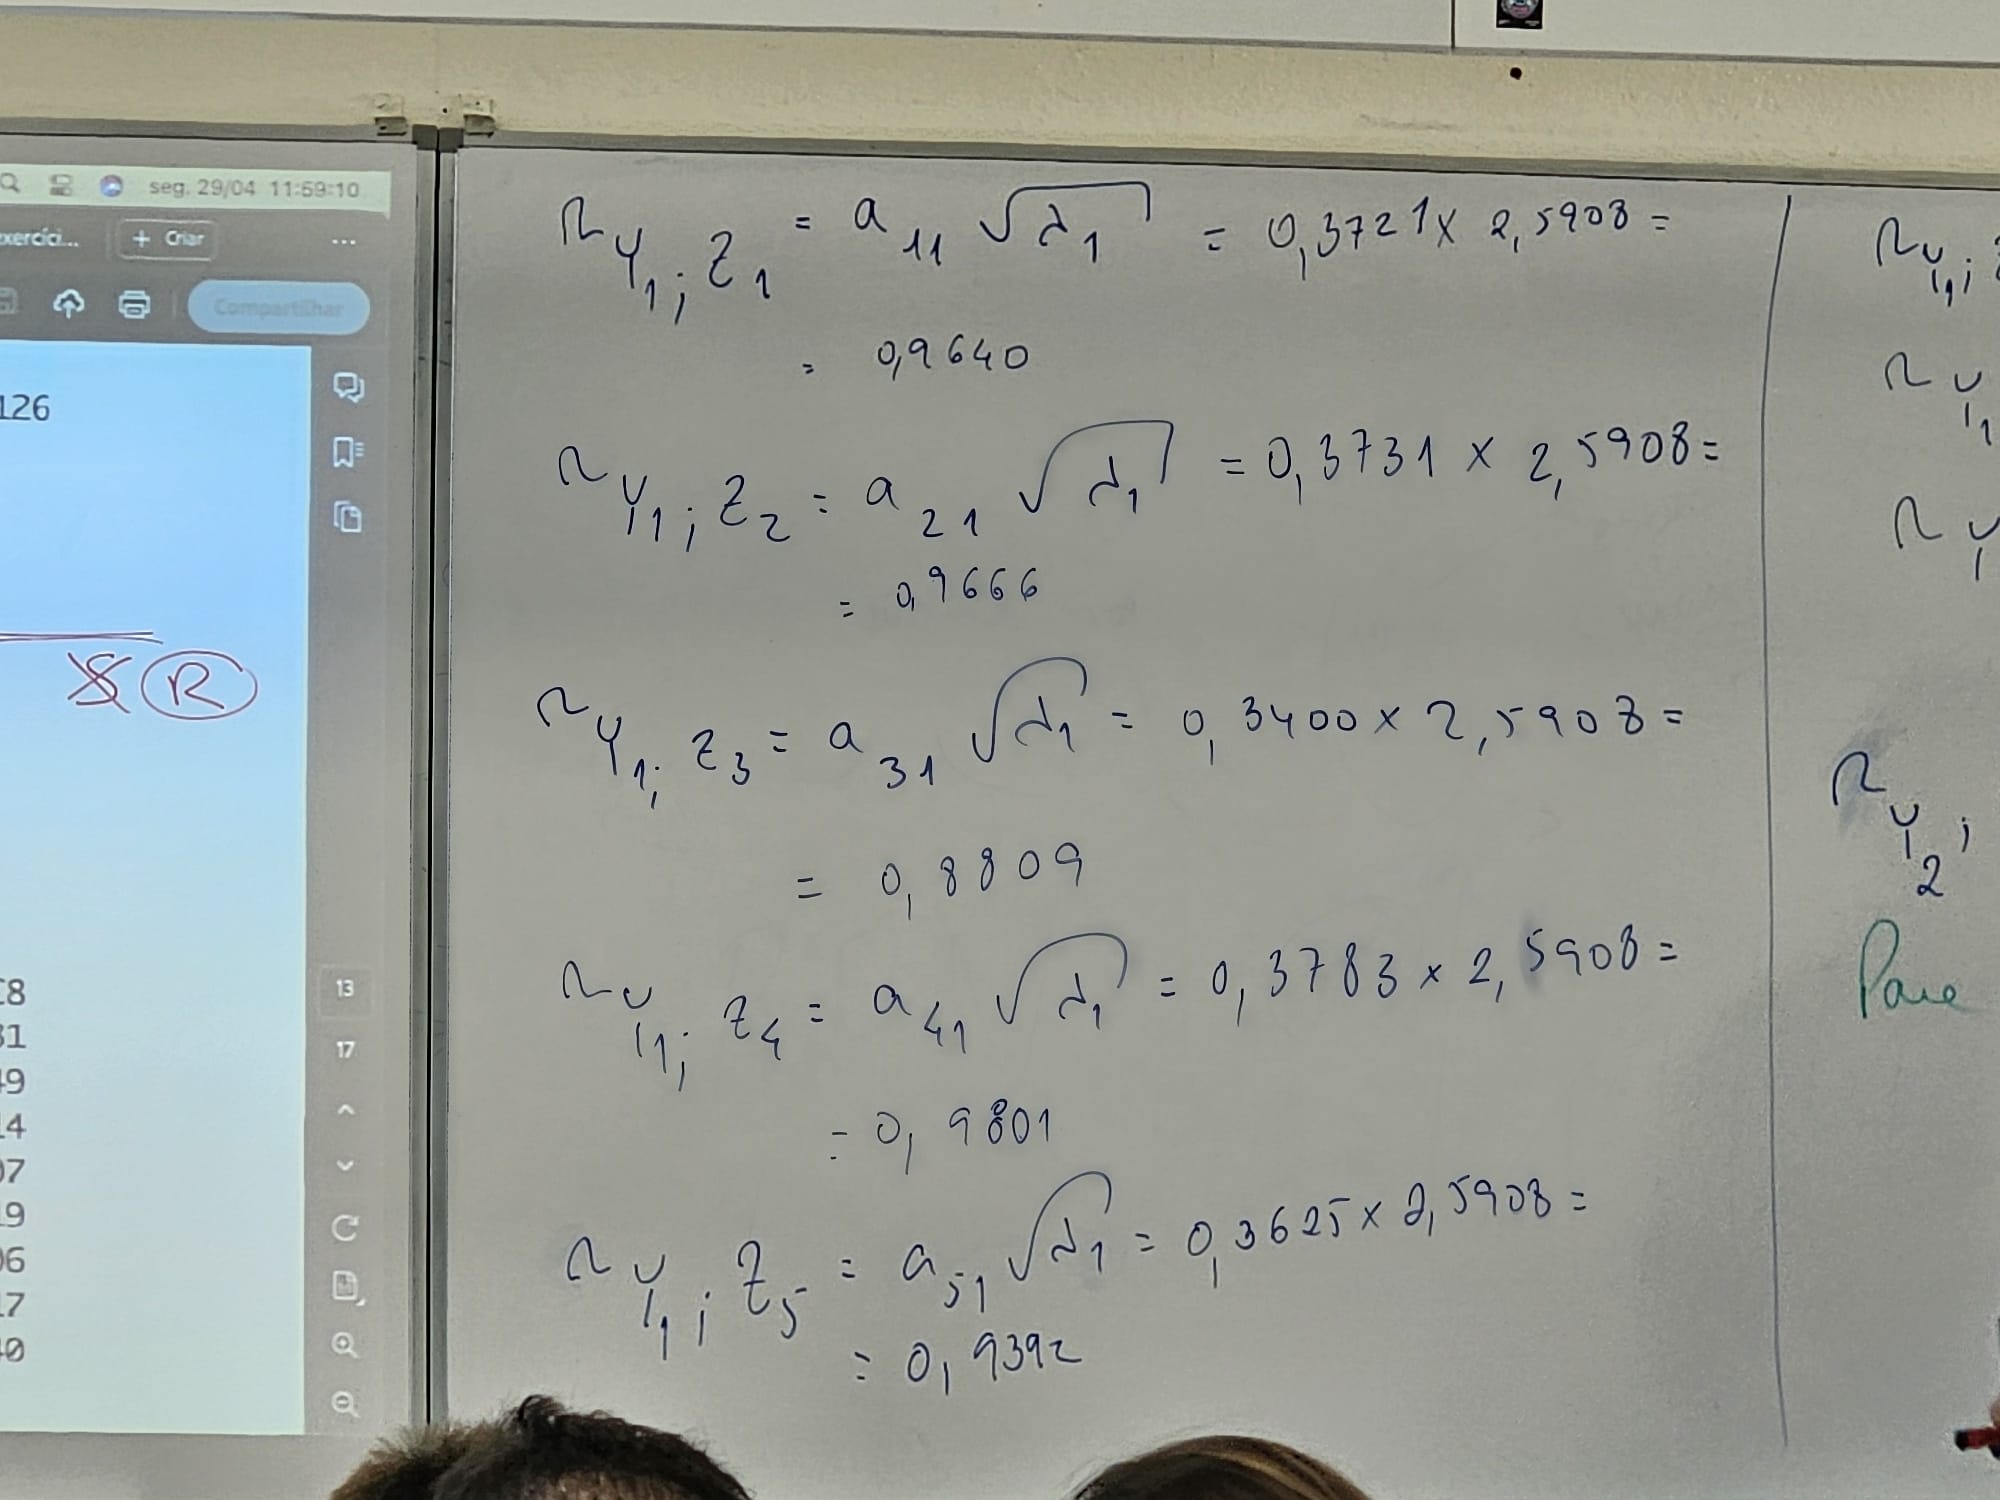 seg. 29/04 11:59:10
+ Criar
...
Compartilhar
126
S R
C8
31
49
14
07
19
06
17
40
13
17
r Y1; Z1 = a11 √λ1 = 0,3721 x 2,5908 =
= 0,9640
r Y1; Z2 = a21 √λ1 = 0,3731 x 2,5908 =
= 0,9666
r Y1; Z3 = a31 √λ1 = 0,3400 x 2,5908 =
= 0,8809
r Y1; Z4 = a41 √λ1 = 0,3783 x 2,5908 =
= 0,9801
r Y1; Z5 = a51 √λ1 = 0,3625 x 2,5908 =
= 0,9392
r Y1;
r Y1
r Y
r Y2;
Para